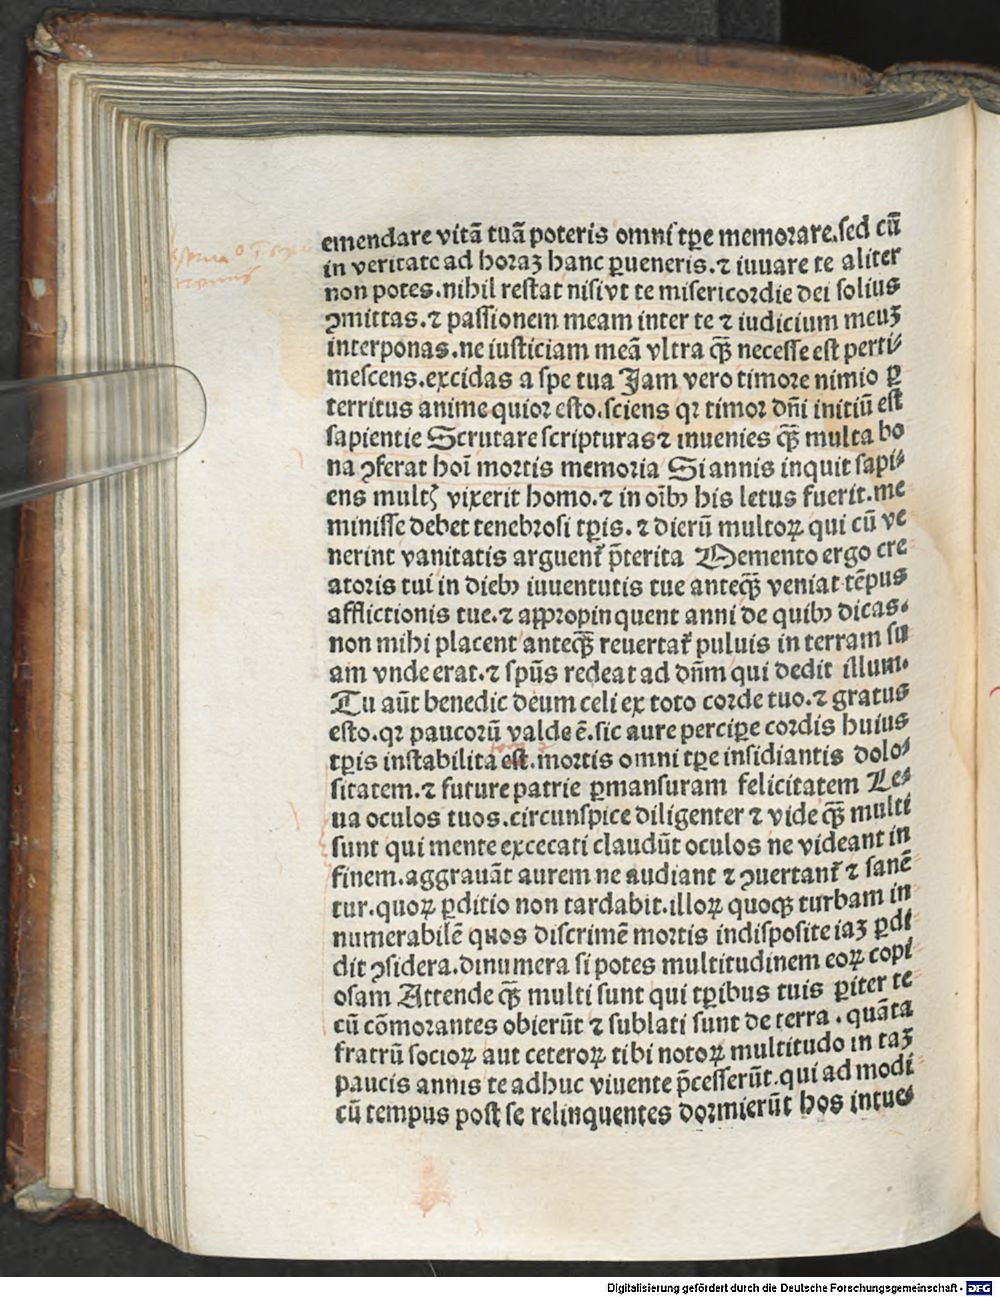 emendare vitā tuā poteris omni tꝑe memorare.sed cū
in veritate ad horaʒ hanc ꝑueneris.⁊ iuuare te aliter
non potes.nihil restat nisi vt te misericordie dei solius
ꝯmittas.⁊ passionem meam inter te ⁊ iudicium meuʒ
interponas.ne iusticiam meā vltra qꝫ̄ necesse est perti⸗
mescens.excidas a spe tua Jam vero timore nimio ꝑ
territus anime quior esto.sciens qꝛ timor dn̄i initiū est
sapientie Scrutare scripturas ⁊ inuenies qꝫ̄ multa bo
na ꝯferat hoī mortis memoria Si annis inquit sapi⸗
ens multꝭ vixerit homo.⁊ in oībꝫ his letus fuerit.me
minisse debet tenebrosi tꝑis.⁊ dierū multoꝝ qui cū ve
nerint vanitatis arguent̄ p̄terita Memento ergo cre
atoris tui in diebꝫ iuuentutis tue anteqꝫ̄ veniat tēpus
afflictionis tue.⁊ appropinquent anni de quibꝫ dicas.
non mihi placent anteqꝫ̄ reuertat̄ puluis in terram su
am vnde erat.⁊ spūs redeat ad dn̄m qui dedit illum.
Tu aūt benedic deum celi ex toto corde tuo.⁊ gratus
esto.qꝛ paucorū valde ē.sic aure percipe cordis huius
tꝑis instabilita est.mortis omni tꝑe insidiantis dolo⸗
sitatem.⁊ future patrie ꝑmansuram felicitatem Le⸗
ua oculos tuos.circunspice diligenter ⁊ vide qꝫ̄ multi
sunt qui mente excecati claudūt oculos ne videant in
finem.aggrauāt aurem ne audiant ⁊ ꝯuertant̄ ⁊ sanē
tur.quoꝝ ꝑditio non tardabit.illoꝝ quoqꝫ turbam in
numerabilē quos discrimē mortis indisposite iaʒ ꝑdi
dit ꝯsidera.dinumera si potes multitudinem eoꝝ copi
osam Attende qꝫ̄ multi sunt qui tꝑibus tuis ꝑiter te
cū cōmorantes obierūt ⁊ sublati sunt de terra.quāta
fratrū socioꝝ aut ceteroꝝ tibi notoꝝ multitudo in taʒ
paucis annis te adhuc viuente p̄cesserūt.qui ad modi
cū tempus post se relinquentes dormierūt hos intue⸗
Digitalisierung gefördert durch die Deutsche Forschungsgemeinschaft - DFG